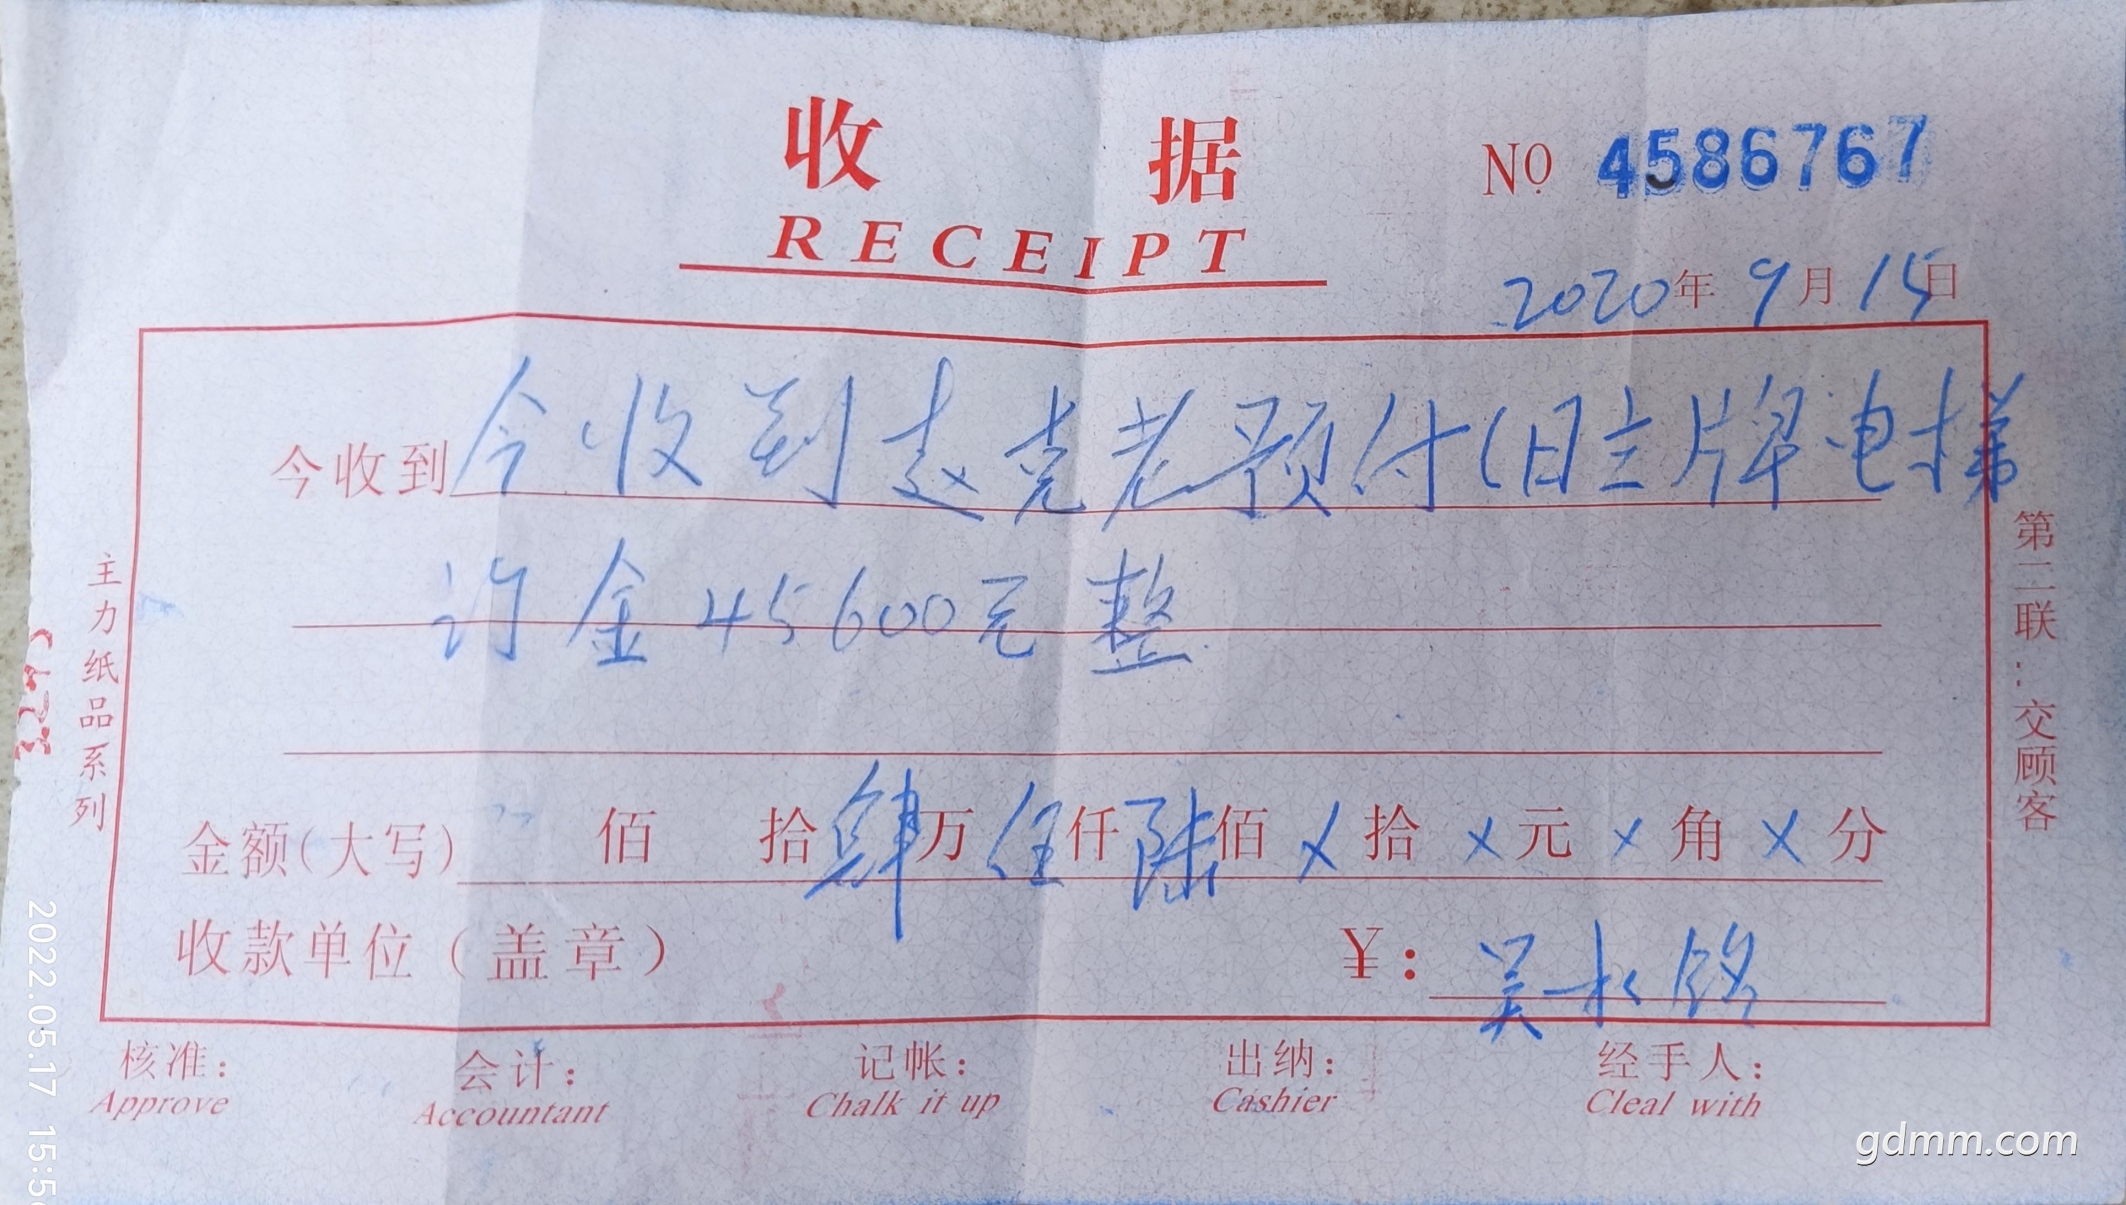 收 据
RECEIPT
NO. 4586767
2020年9月15日
今收到今收到赵克老预付(日立牌电梯
订金45600元整
金额(大写) 佰 拾肆万伍仟陆佰×拾×元×角×分
收款单位(盖章) ¥: 吴水铭
核准: 会计: 记帐: 出纳: 经手人:
Approve Accountant Chalk it up Cashier Cleal with
主力纸品系列
第二联:交顾客
2022.05.17 15:5
gdmm.com